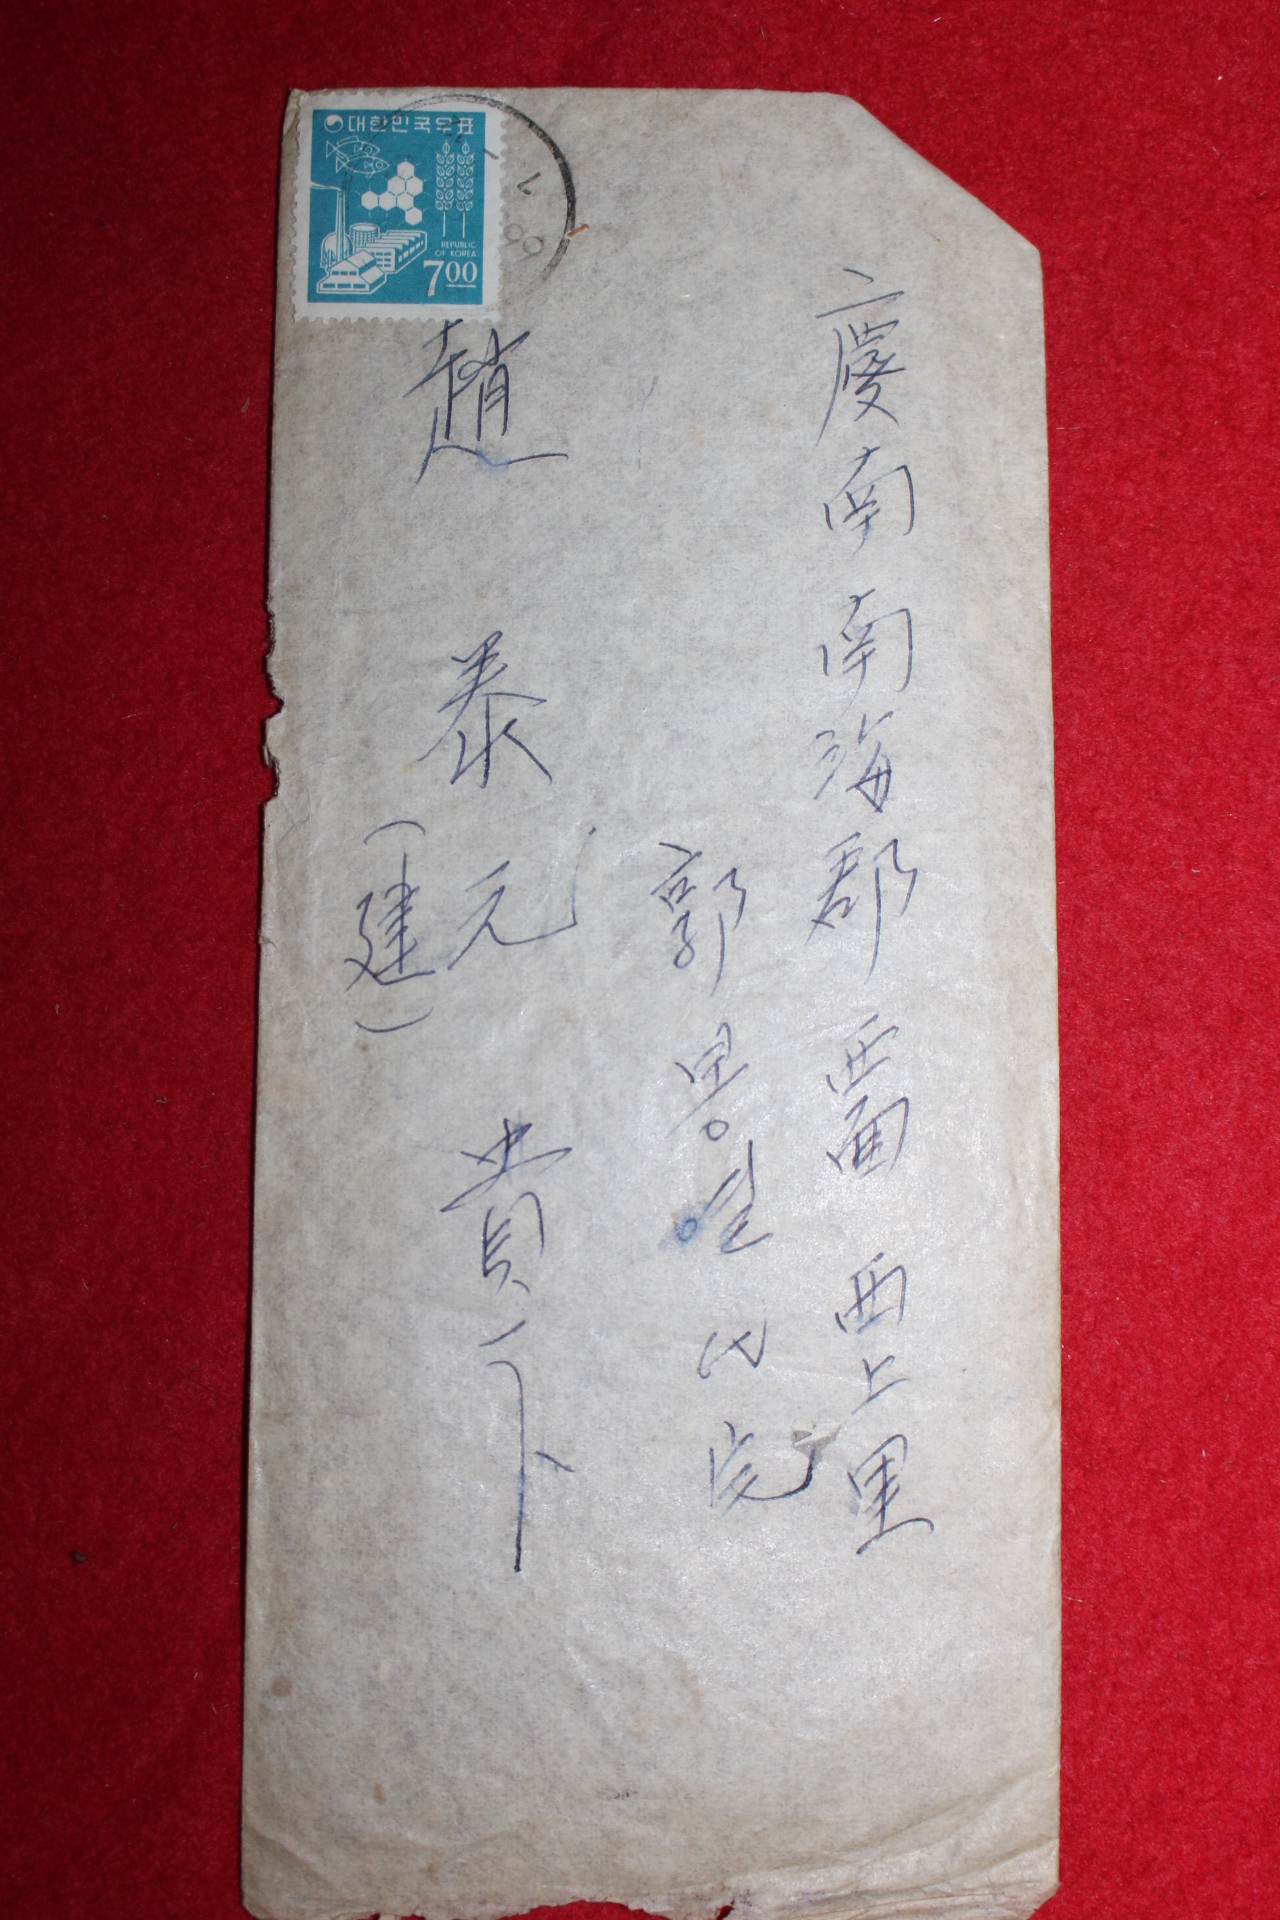 대한민국우표
REPUBLIC
OF KOREA
700
慶南 南海郡 西面 西上里
郭몽일 代宅
趙泰元
(建)
貴下